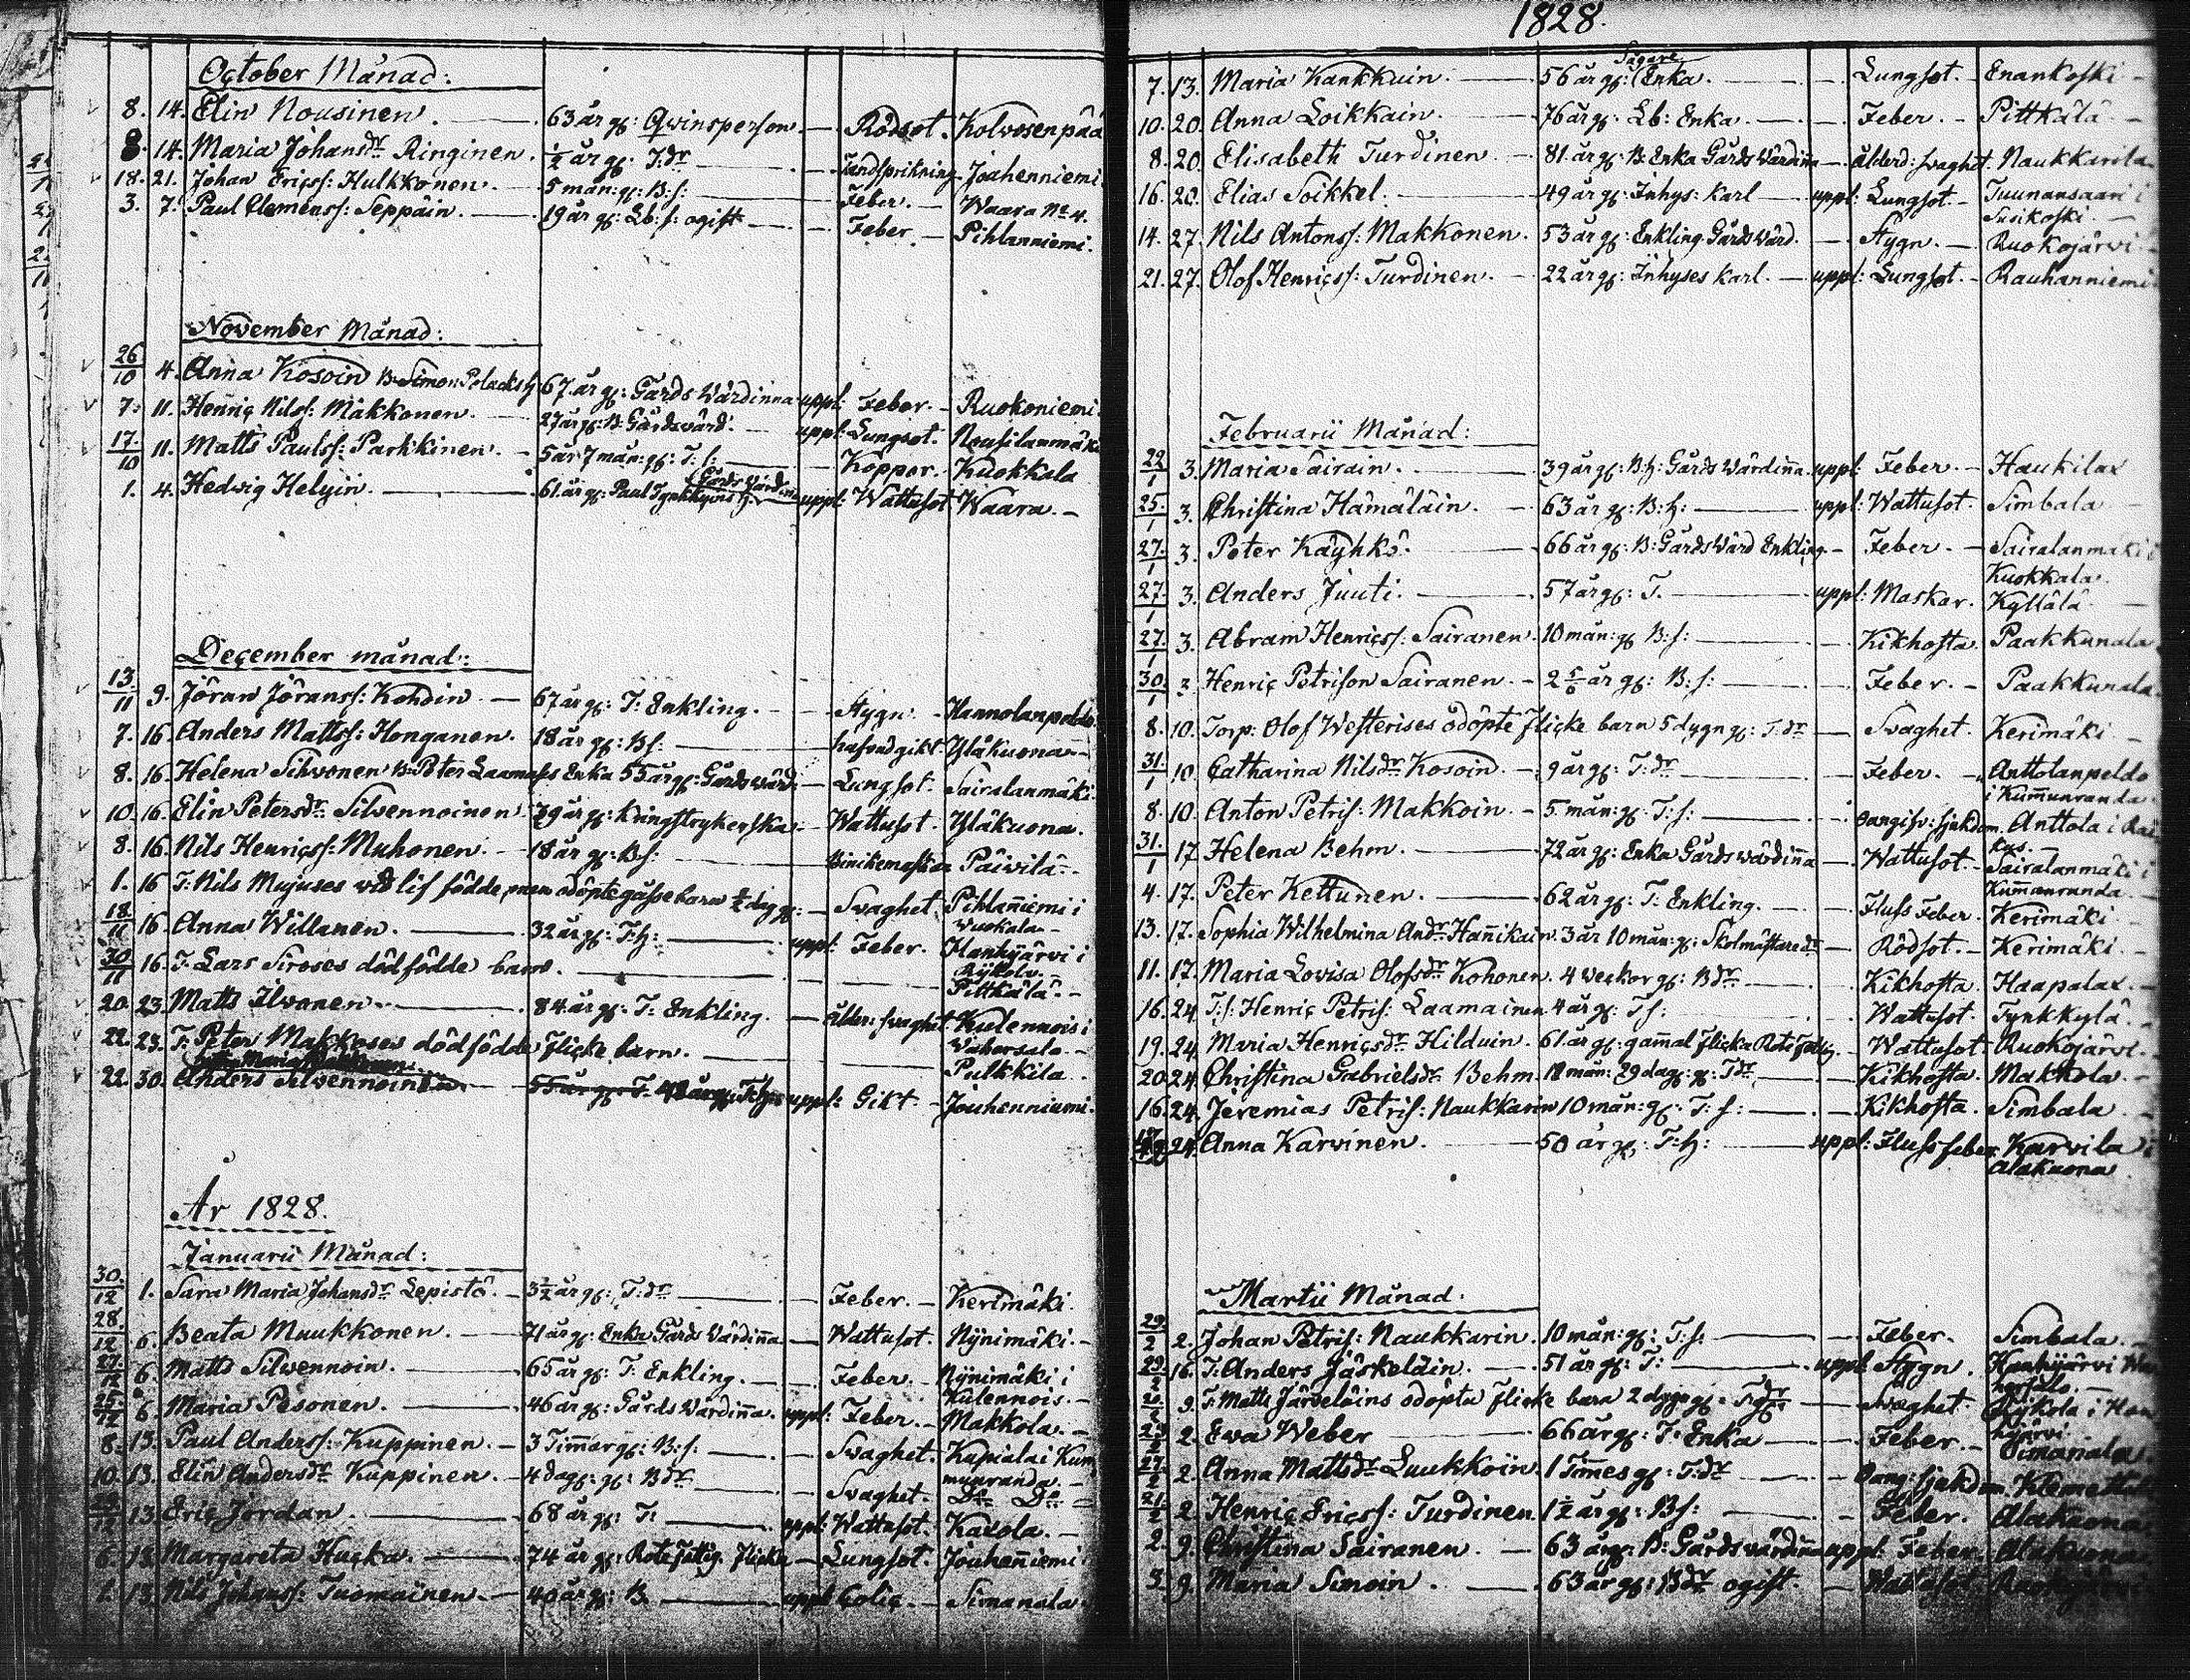 October Månad:
8. 14. Elin Nousinen. 63 år gl: Qvinsperson. Rödsot. Kolvosenpää
8. 14. Maria Johansdr Ringinen. ½ år gl: T:dr Tandsprikning Jouhenniemi
18. 21. Johan Ericss: Hulkkonen. 5 mån: gl: B: s: Feber Waara No 4.
3. 7. Paul Clemenss: Seppäin. 19 år gl: Lb: s: ogift Feber Pihlanniemi.
November Månad:
26/10 4. Anna Kosoin B: Simon Polacks h: 67 år gl: Gårds Wärdinna uppl: Feber. Ruokoniemi
7. 11. Henric Nilss: Makkonen. 27 år gl: B: Gårdswärd. uppl: Lungsot. Nousilanmäki
17/10 11. Matts Paulss: Parkkinen. 5 år 7 mån: gl: T: s: Koppor. Kuokkala
1. 4. Hedvig Helyin. 61 år gl: Paul Tynkkyins h: Gårds Wärdina uppl: Wattusot Waara.
December månad:
13/11 9. Jöran Jöranss: Kohdin 67 år gl: T: Enkling. Stygn. Hannolanpeldo
7. 16. Anders Mattss: Honganen. 18 år gl: B s: hufvudgikt. Yläkuona
8. 16. Helena Silvonen B: Peter Laamaiss Enka 55 år gl: Gårdswärd: Lungsot. Sairalanmäki.
10. 16. Elin Petersdr Silvennoinen 39 år gl: Kringstrykerska. Wattusot. Yläkuona.
8. 16. Nils Henricss: Muhonen. 18 år gl: B: s: Binikemaskar Päiwilä
1. 16 T: Nils Mujuses vid lif födde, men odöpte gåssebarn ½ dag gl: Svaghet Pihlanniemi i
Wuokala
18/11 16. Anna Willanen. 32 år gl: T: h: uppl: Feber. Hanhijärvi i
Rykolv.
30/11 16. T: Lars Siroses dödfödde barn. Pittkälä.
20. 23. Matts Ilvonen. 84 år gl: T: Enkling. Ålder: svaghet. Kulennois i
Wahersalo
22. 23. T: Peter Makkoses dödfödde Flicke barn. Pulkkila
22. 30. Anders Silvennoin 55 år gl: T. 48 år gl: T: h: uppl: Gikt. Jouhenniemi.
År 1828.
Januarii Månad:
30/12 1. Sara Maria Johansdr Lepistö. 3½ år gl: T:dr Feber. Kerimäki
28/12 6. Beata Muukkonen. 71 år gl: Enka Gårds Wärdinna Wattusot. Nynimäki.
27/12 6. Matts Silvennoin. 65 år gl: T: Enkling. Feber. Nynimäki i
Kulennois.
25/12 6. Maria Pesonen. 46 år gl: Gårds Wärdinna. uppl: Feber. Makkola.
8. 13. Paul Anderss: Kuppinen. 3 Timmar gl: B: s: Svaghet. Kupiala i Kum
munranda
10. 13. Elin Andersdr Kuppinen. 4 dag: gl: Bdr Svaghet. Do Do
29/12 13. Eric Jordan. 68 år gl: T: uppl: Wattusot. Kaxola.
6. 13. Margareta Hucka. 74 år gl: Rote Fattig Flicka Lungsot. Jouhenniemi
1. 13. Nils Johanss: Tuomainen. 40 år gl: B. uppl: Colic. Simanala
1828.
7. 13. Maria Kankkuin. 56 år gl: Sågare Enka. Lungsot. Enankoski
10. 20. Anna Loikkain. 76 år gl: Lb: Enka. Feber. Pittkälä
8. 20. Elisabeth Turdinen 81 år gl: B: Enka Gårds Wärdinna Ålderd: svaghet. Naukkarila
16. 20. Elias Soikkel. 49 år gl: Inhys: karl uppl: Lungsot. Tuunansaari i
Susikoski.
14. 27. Nils Antonss: Makkonen. 53 år gl: Enkling. Gårds Wärd. Stygn. Ruokojärvi
21. 27. Olof Henricss: Turdinen. 22 år gl: Inhyses karl. uppl: Lungsot. Rauhanniemi
Februarii Månad:
22/1 3. Maria Sairain. 39 år gl: B: h: Gårds Wärdinna. uppl: Feber. Haukilax
25/1 3. Christina Hämäläin. 63 år gl: B: h: uppl: Wattusot. Simbala
27/1 3. Peter Käyhkö. 66 år gl: B: Gårds Wärd Enkling Feber. Sairalanmäki i
Kuokkala.
27/1 3. Anders Juuti. 57 år gl: T. uppl: Maskar. Kyllälä
27/1 3. Abram Henricss: Sairanen. 10 mån: gl: B: s: Kikhosta. Paakkunala
30/1 3. Henric Petrison Sairanen. 2 år gl: B: s: Feber. Paakkunala.
8. 10. Torp: Olof Westerises odöpte Flicke barn 5 dygn gl: T:dr Svaghet. Kerimäki.
31/1 10. Catharina Nilsdr Kosoin. 9 år gl: T:dr Feber. Anttolanpeldo
i Kummunranda
8. 10. Anton Petris: Makkoin 5 mån: gl: T: s: Oangifv: sjukdom. Anttola i Rai
kus.
31/1 17 Helena Behm. 72 år gl: Enka Gårds wärdinna Wattusot. Sairalanmäki i
Kummanranda
4. 17. Peter Kettunen. 62 år gl: T: Enkling. Fluss Feber. Kerimäki
13. 17. Sophia Wilhelmina Andr. Hannikain. 3 år 10 mån: gl: Skolmästaredr Rödsot. Kerimäki.
11. 17. Maria Lovisa Olofsdr Kohonen. 4 veckor gl: Bdr Kikhosta. Haapalax.
16. 24 T: s: Henric Petris: Laamainen 4 år gl: T s: Wattusot. Tynkkylä.
19. 24. Maria Henricsdr Hilduin. 61 år gl: gammal Flicka Rote Fattig. Wattusot. Ruokojärvi.
20. 24. Christina Gabrielsdr Behm 18 mån: 29 dag: gl: Tdr. Kikhosta. Makkola.
16. 24. Jeremias Petris: Naukkarin 10 mån: gl: T: s: Kikhosta. Simbala
24. Anna Karvinen. 50 år gl: T: h: uppl: Fluss feber. Karvila i
Alakuona
Martii Månad.
29/2 2. Johan Petris: Naukkarin. 10 mån: gl: T: s: Feber. Simbala.
29/2 16. T: Anders Jäskeläin. 51 år gl: T: uppl: Stygn. Kanhijärvi Wa
hersalo.
9. T: Matts Järveläins odöpta Flicke barn 2 dygn gl: Tdr Svaghet. Rykola i Han
hijärvi
29/2 2. Eva Weber 66 år gl: T: Enka Feber. Simanala
27/2 2. Anna Mattsdr Luukkoin. 1 Timmes gl: T:dr Oang: sjukdom. Klemettilä
21/2 2. Henric Ericss: Turdinen. 1½ år gl: B s: Feber. Alakuona
2. 9. Christina Sairanen. 63 år gl: B: Gårds wärdinna uppl: Feber. Alakuona
3. 9. Maria Simoin. 63 år gl: Bdr ogift. Wattusot.